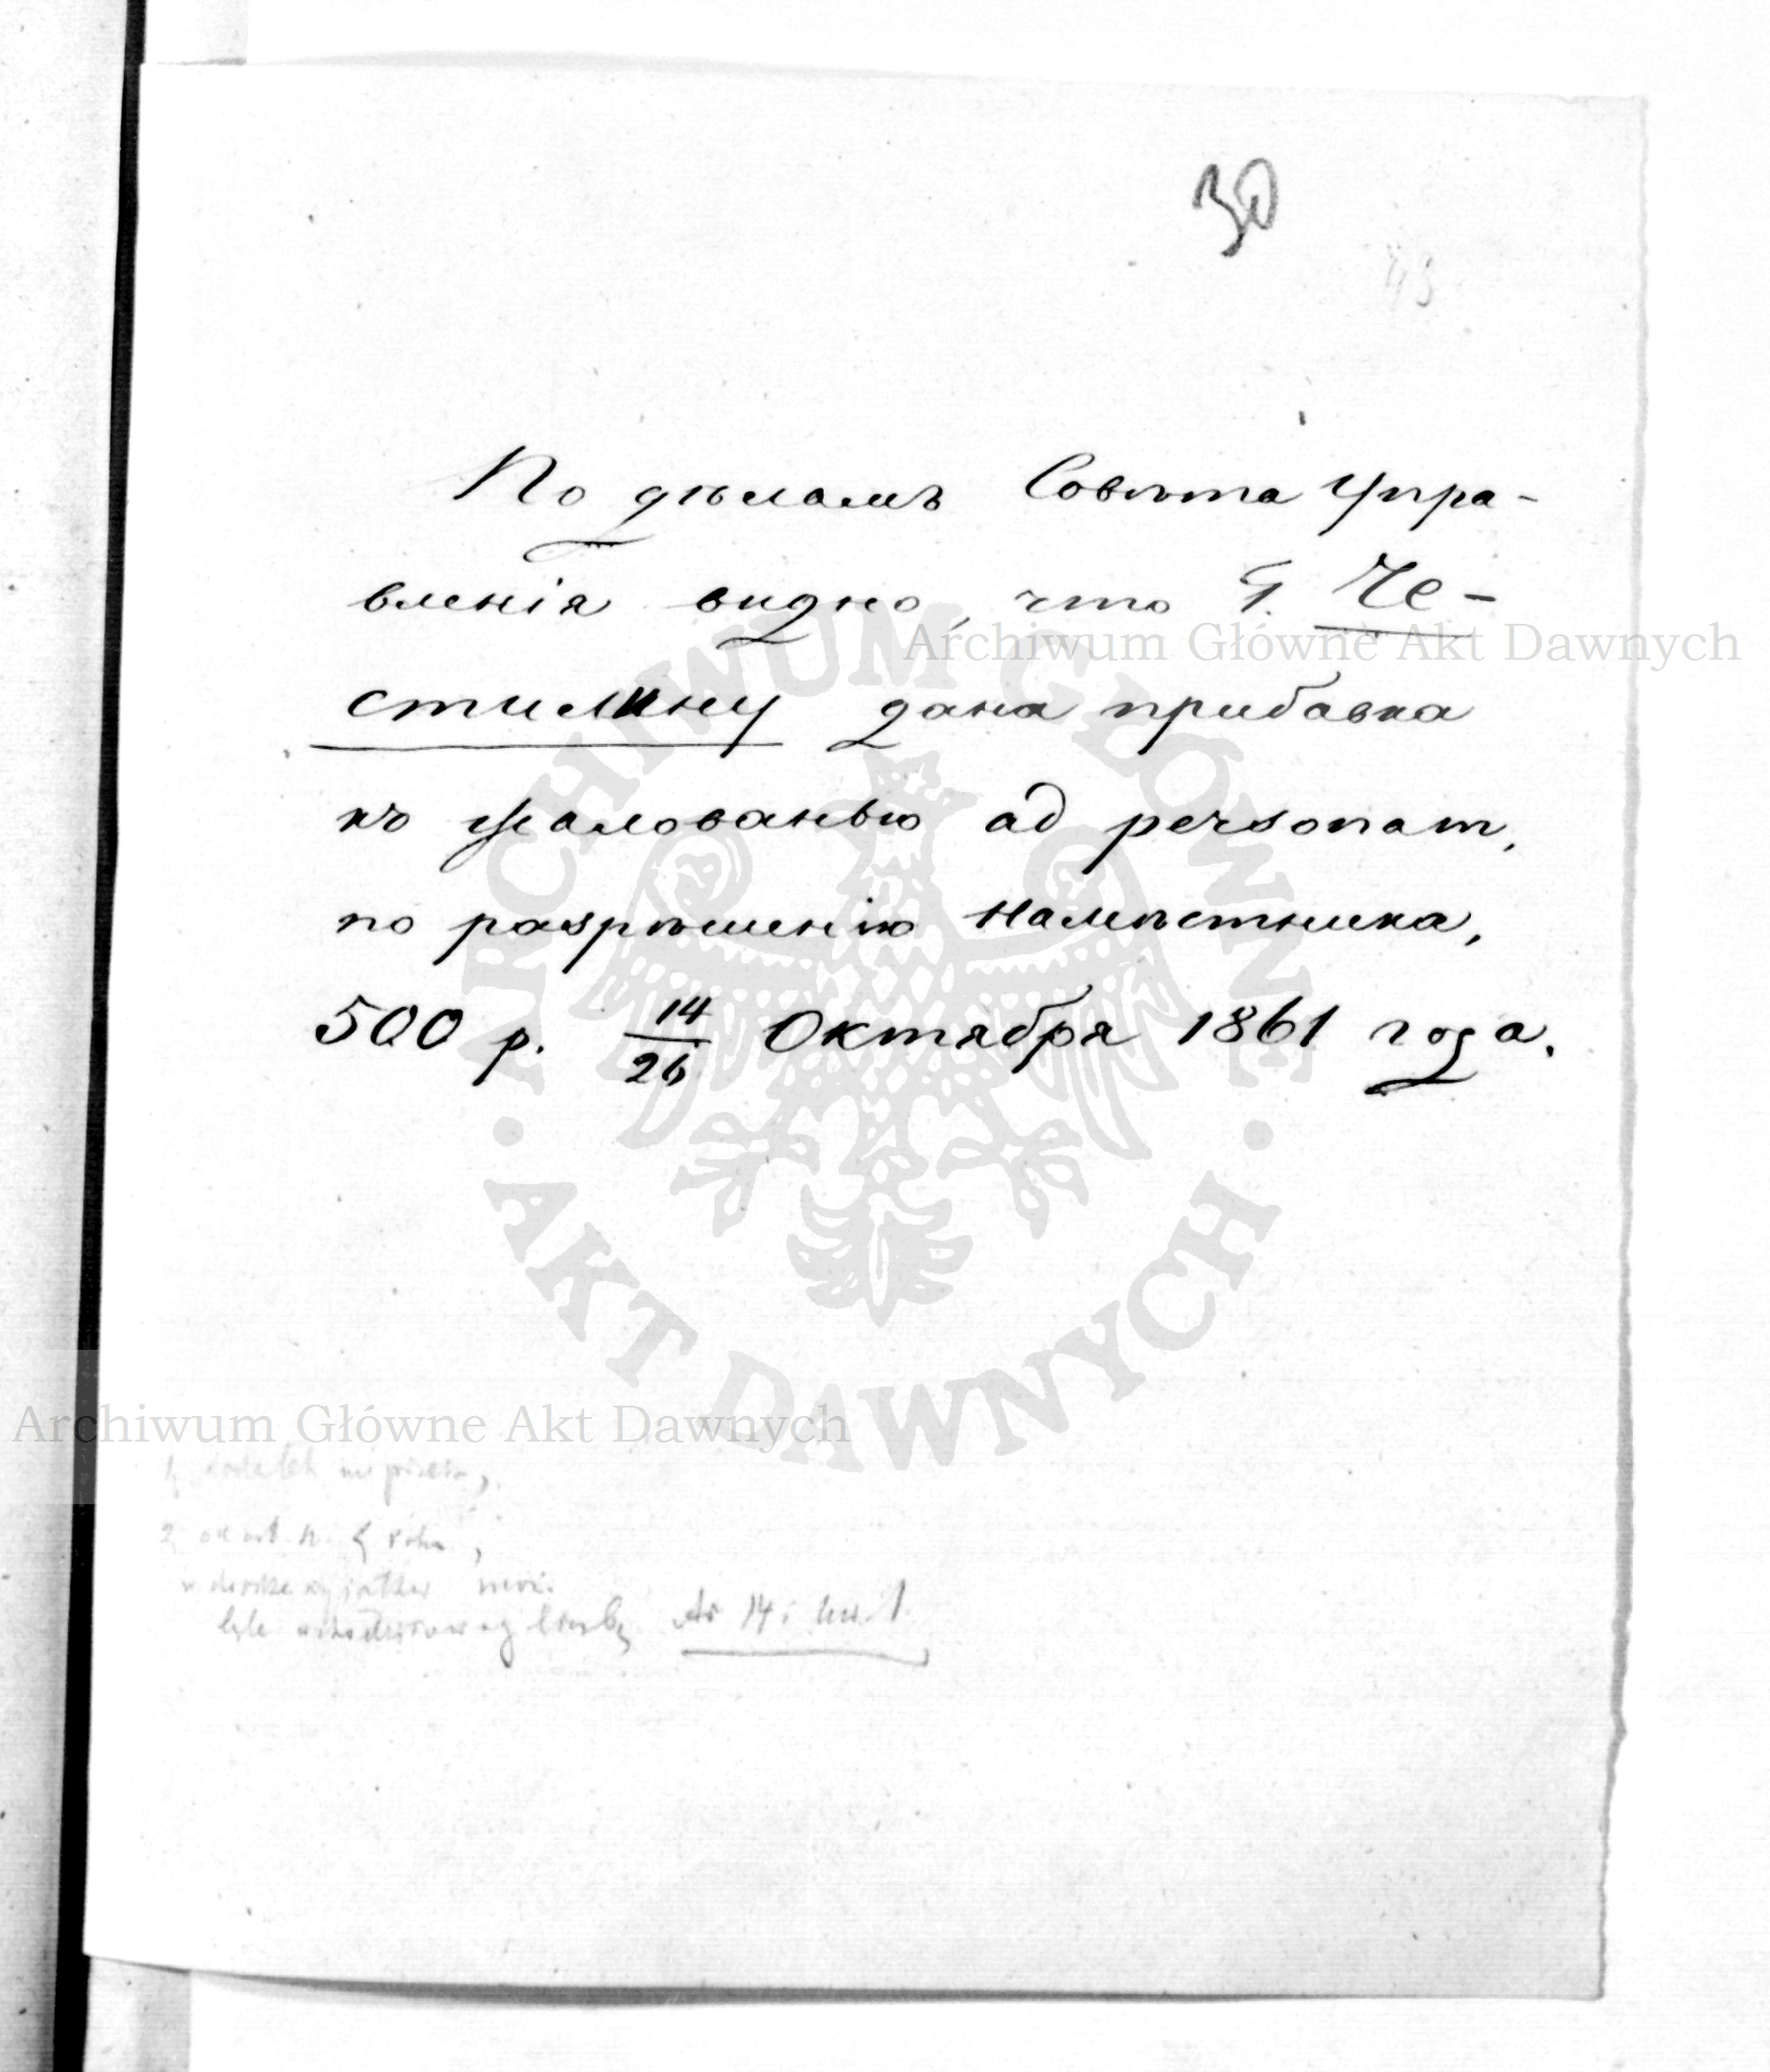 30
43
По дѣламъ Совѣта Упра-
вленія видно, что Г. Че-
стилину дана прибавка
къ жалованью ad personam,
по разрѣшенію Намѣстника,
500 р. 14/26 Октября 1861 года.
Archiwum Główne Akt Dawnych
Archiwum Główne Akt Dawnych
ARCHIWUM GŁÓWNE
AKT DAWNYCH
1, dodatek
2,
14